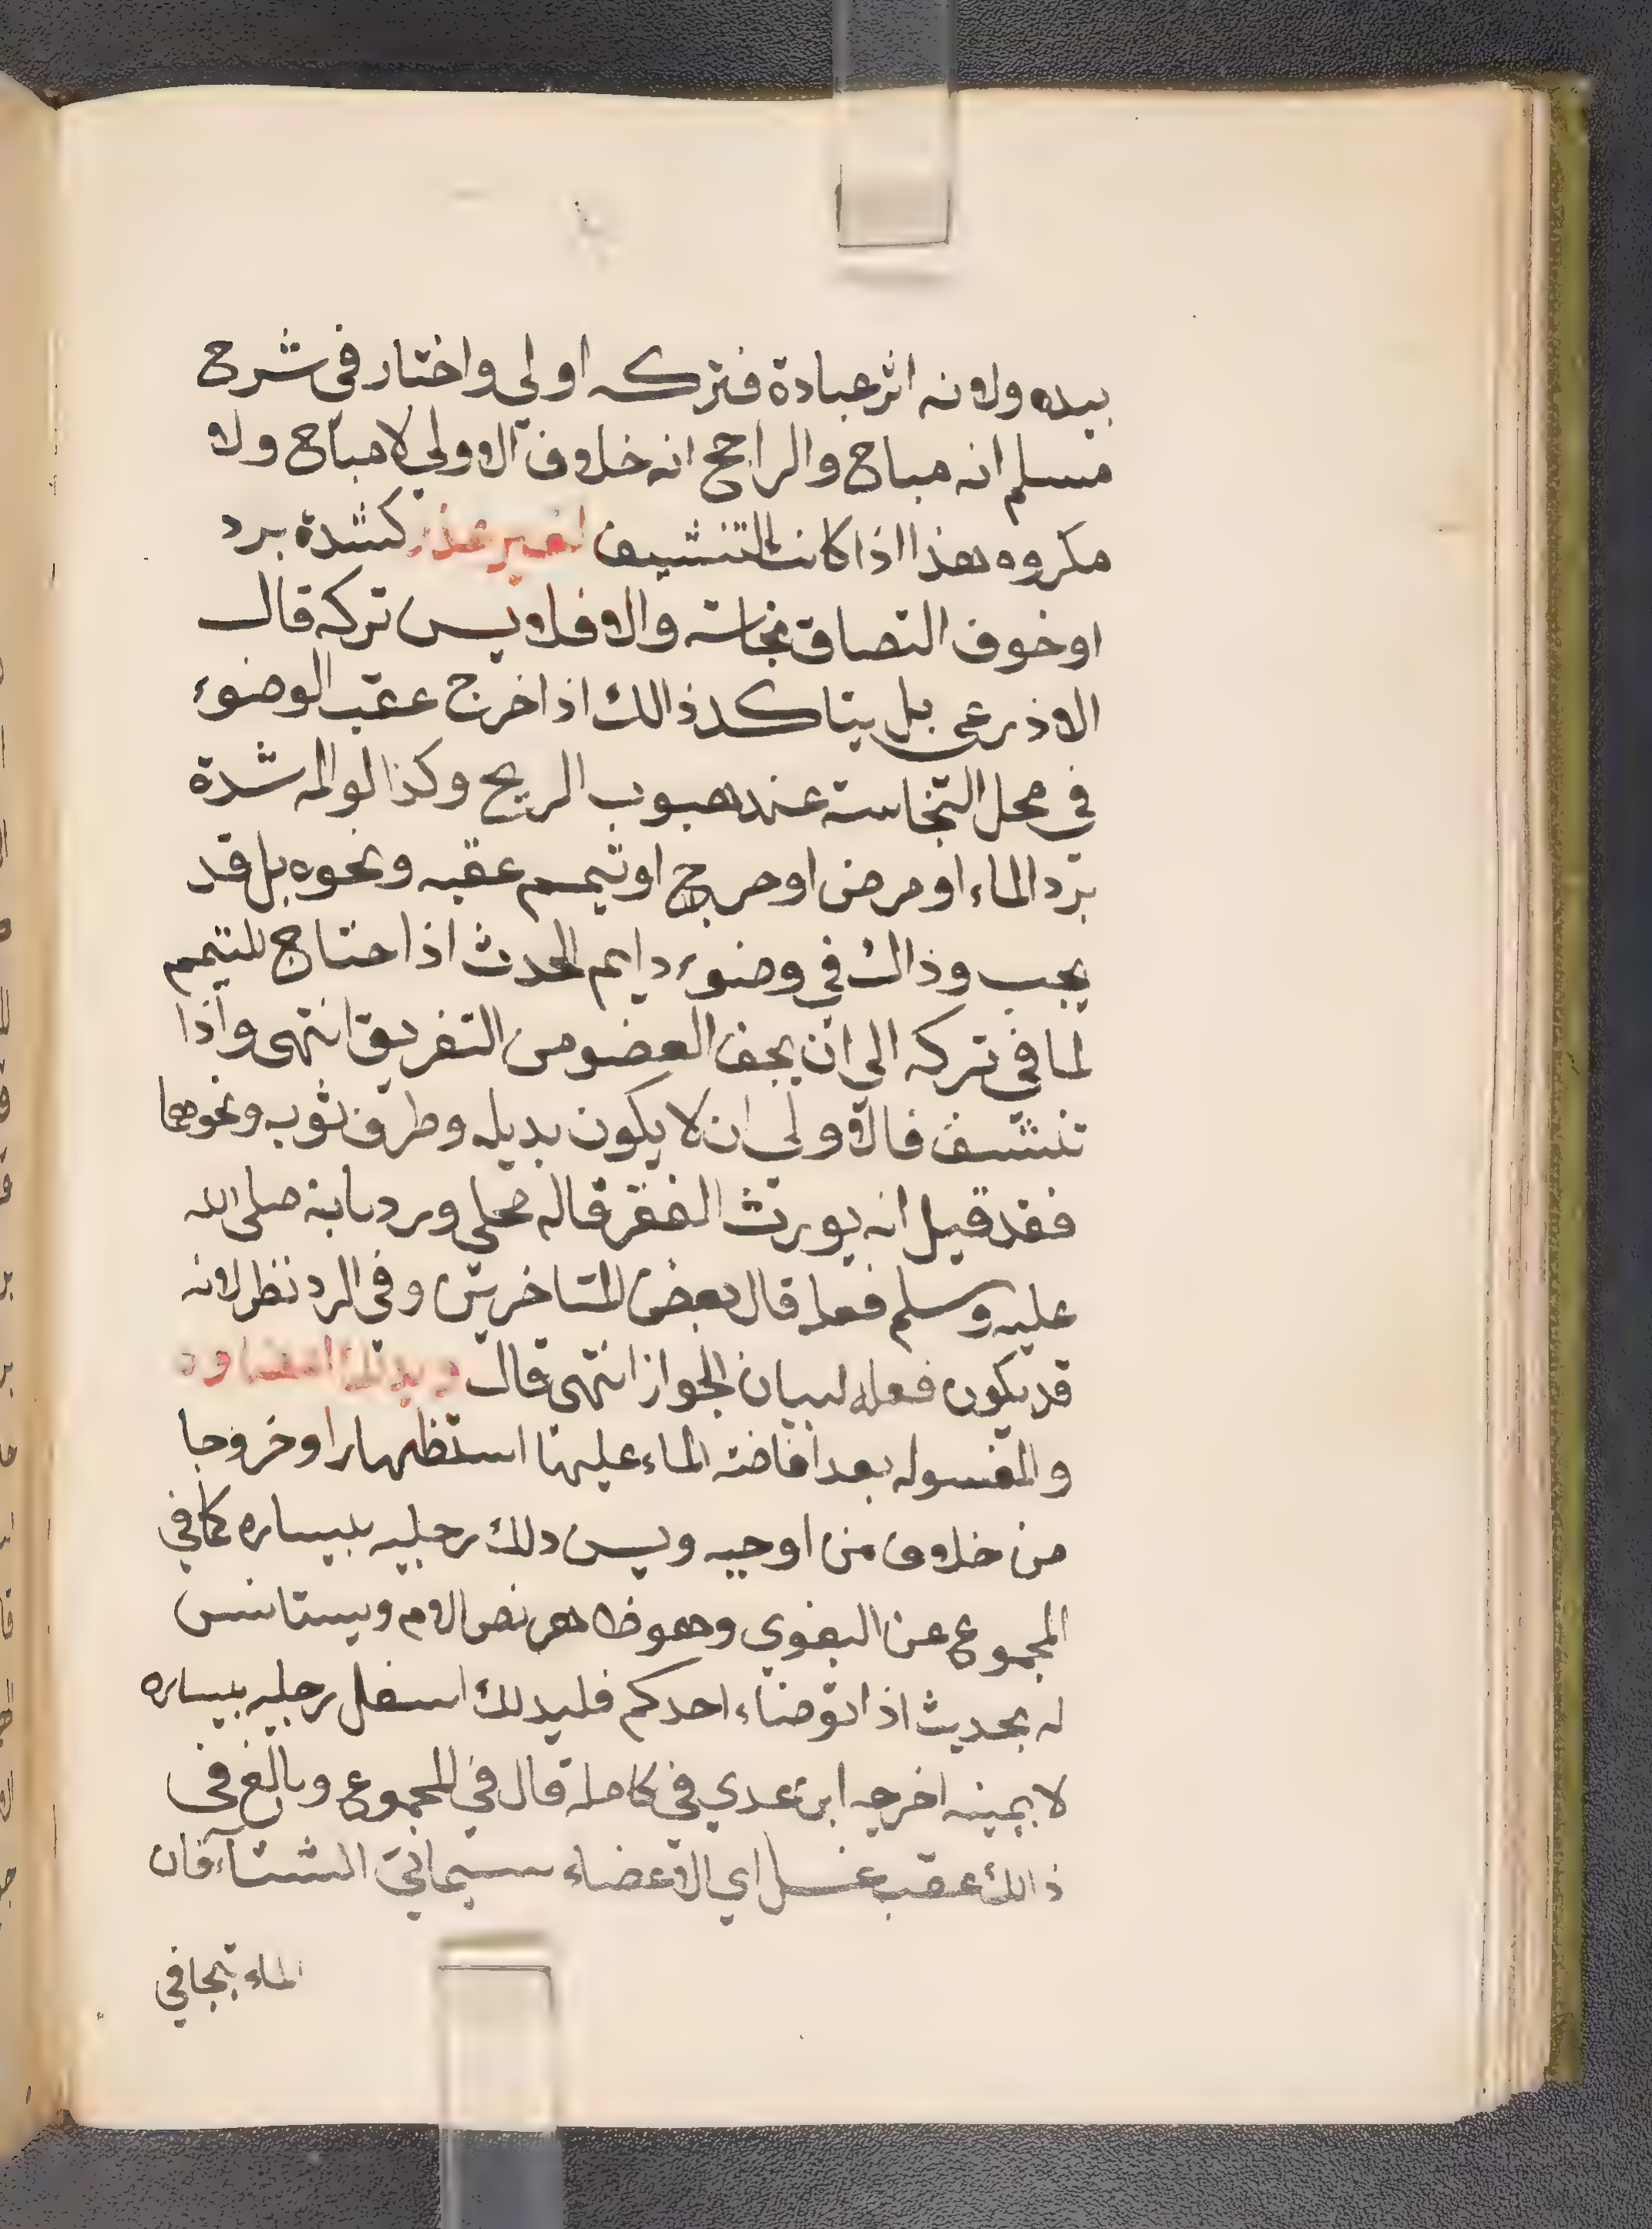 بيده ولانه اثر عبادة فتركه اولي واختار في شرح
مسلم انه مباح والراجح انه خلاف الاولي لا مباح ولا
مكروه هذا اذا كانت التنشيف لغير عذر كشدة برد
او خوف التصاق نجاسة والا فلا يسن تركه قال
الاذرعي بل يتاكد ذالك اذا خرج عقب الوضوء
في محل النجاسة عند هبوب الريح وكذا لو المه شدة
برد الماء او مرض او جرح او تيمم عقبه ونحوه بل قد
يجب وذالك في وضوء دايم الحدث اذا احتاج للتيمم
لما في تركه الي ان يجف العضو من التفريق انتهى واذا
تنشف فالاولي ان لا يكون بذيله وطرف ثوبه ونحوها
فقد قيل انه يورث الفقر قاله محلي ورد بانه صلى الله
عليه وسلم فعله قال بعض المتاخرين وفي الرد نظر لانه
قد يكون فعله لبيان الجواز انتهى قال ويدلك اعضاوه
والمغسوله بعد افاضة الماء عليها استظهارا وخروجا
من خلاف من اوجبه ويسن دلك رجليه بيساره كما في
المجموع عن البغوي وهو ظاهر نص الام ويستانس
له بحديث اذا توضاء احدكم فليدلك اسفل رجليه بيساره
لا بيمينه اخرجه ابن عدي في كامله قال في المجموع وبالغ في
ذالك عقب غسل اي الاعضاء سيما في الشتاء فان
الماء يتجافي